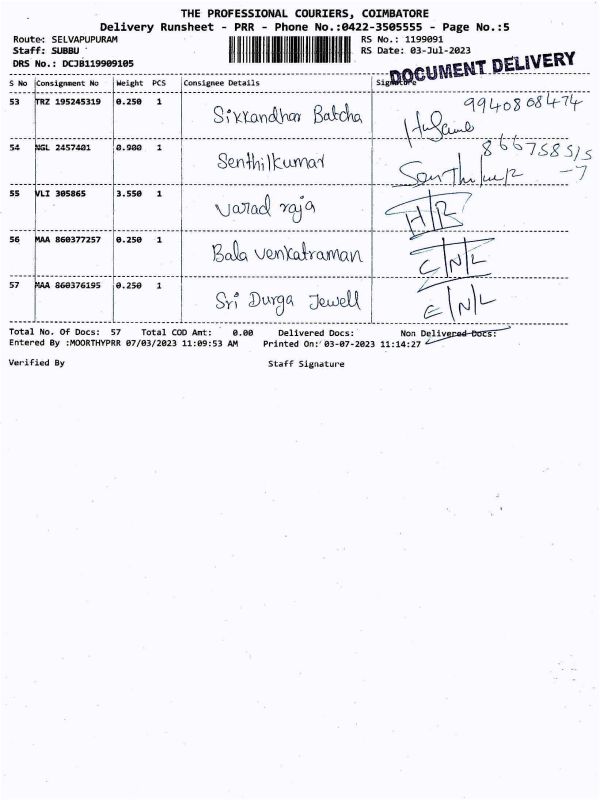 THE PROFESSIONAL COURIERS, COIMBATORE
Delivery Runsheet - PRR - Phone No.:0422-3505555 - Page No.:5
Route: SELVAPUPURAM RS No.: 1199091
Staff: SUBBU RS Date: 03-Jul-2023
DRS No.: DCJB119909105
DOCUMENT DELIVERY
S No Consignment No Weight PCS Consignee Details Signature
53 TRZ 195245319 0.250 1 Sikkandhar Batcha 9940808474
54 NGL 2457401 0.900 1 Senthilkumar 866758515
-7
55 VLI 305865 3.550 1 Varad raja H/R
56 MAA 860377257 0.250 1 Bala Venkatraman C/N/L
57 MAA 860376195 0.250 1 Sri Durga Jewell C/N/L
Total No. Of Docs: 57 Total COD Amt: 0.00 Delivered Docs: Non Delivered Docs:
Entered By :MOORTHYPRR 07/03/2023 11:09:53 AM Printed On: 03-07-2023 11:14:27
Verified By Staff Signature